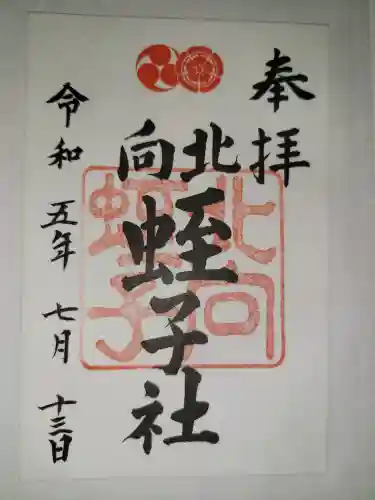 奉拝
北向
蛭子社
令和五年七月十三日
北向
蛭子